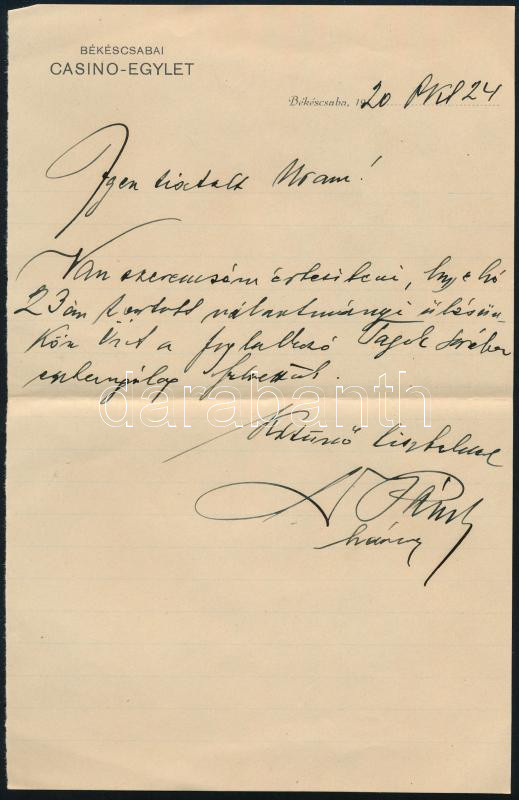 BÉKÉSCSABAI
CASINO-EGYLET
Békéscsaba, 1920 Okt 24
Igen tisztelt Uram!
Van szerencsém értesíteni, hogy e hó
23án tartott választmányi ülésün-
kön Önt a foglalkozó Tagok sorába
felvettük.
Kitünő tisztelettel
darabanth